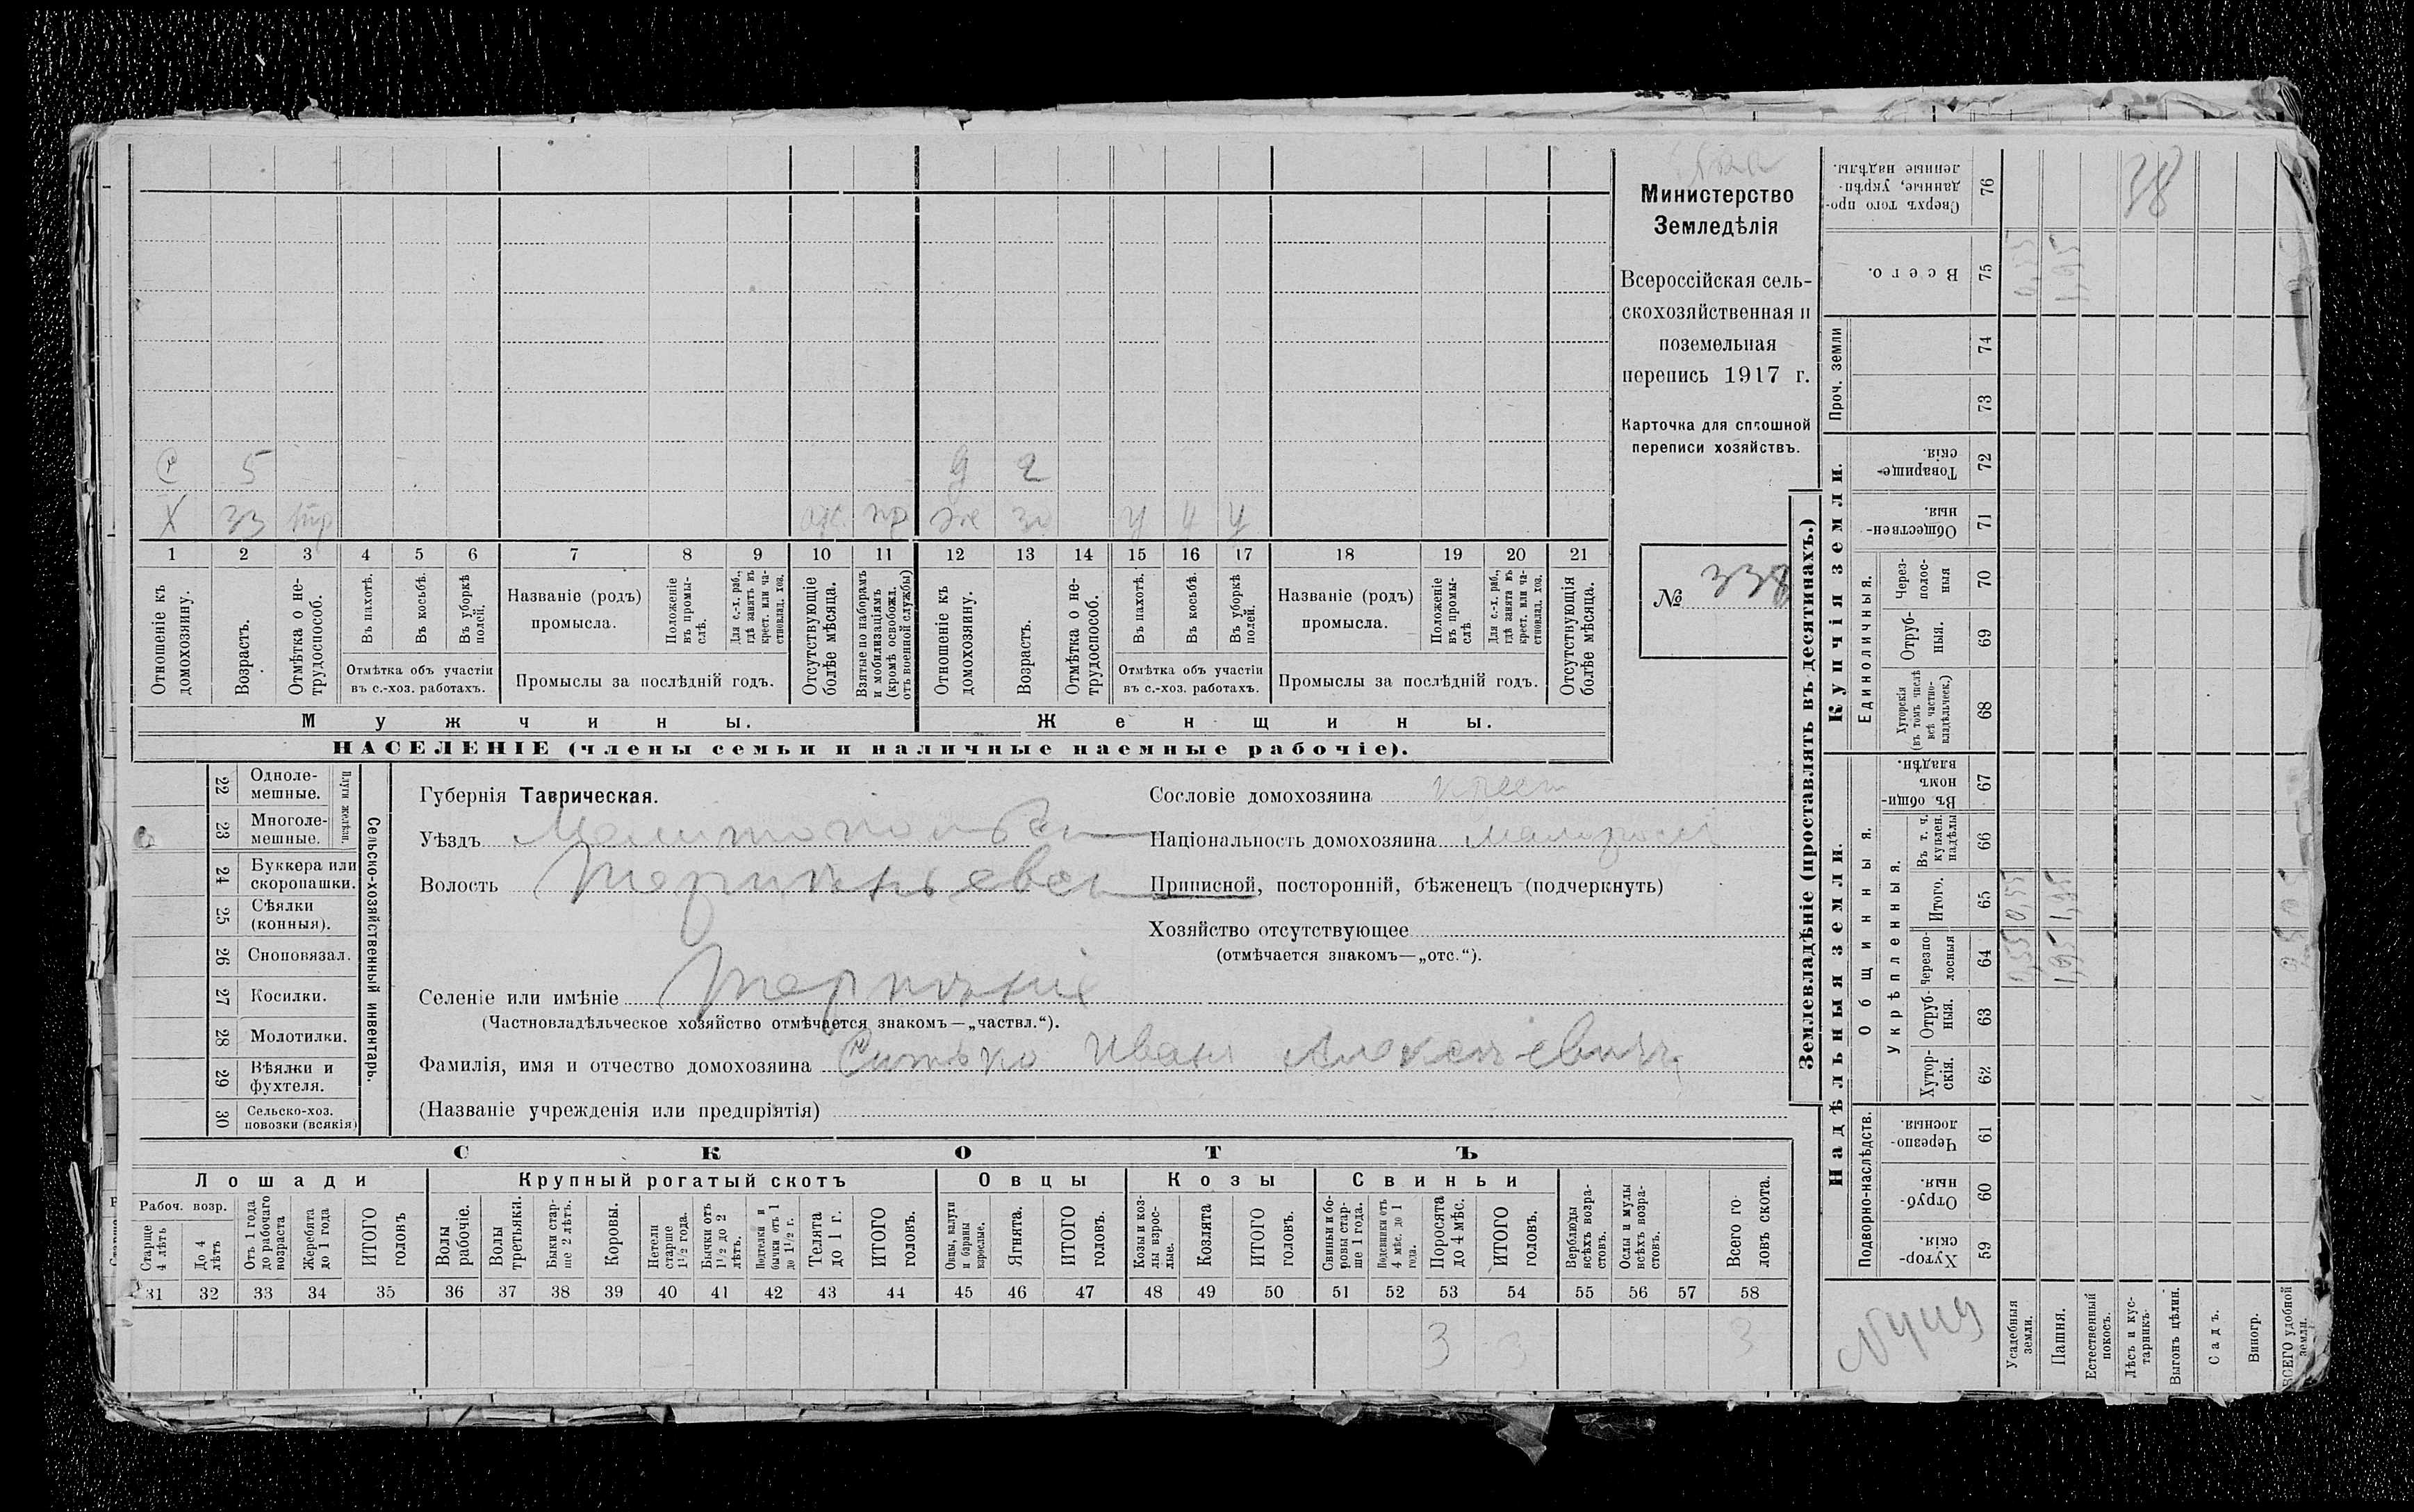 Министерство
Земледѣлія
Всероссійская сель-
скохозяйственная и
поземельная
перепись 1917 г.
Карточка для сплошной
переписи хозяйствъ.
№ 338
С 5 д 2
Х 33 ж 30 у у у
1 2 3 4 5 6 7 8 9 10 11 12 13 14 15 16 17 18 19 20 21
Отношеніе къ домохозяину.
Возрастъ.
Отмѣтка о не-трудоспособ.
Въ пахотѣ.
Въ косьбѣ.
Въ уборкѣ полей.
Отмѣтка объ участіи
въ с.-хоз. работахъ.
Названіе (родъ)
промысла.
Положеніе въ промы-слѣ.
Для с.-х. раб., гдѣ занятъ въ крест. или ча-стновлад. хоз.
Промыслы за послѣдній годъ.
Отсутствующіе болѣе мѣсяца.
Взятые по наборамъ и мобилизаціямъ (кромѣ освобожд. отъ военной службы)
Отношеніе къ домохозяину.
Возрастъ.
Отмѣтка о не-трудоспособ.
Въ пахотѣ.
Въ косьбѣ.
Въ уборкѣ полей.
Отмѣтка объ участіи
въ с.-хоз. работахъ.
Названіе (родъ)
промысла.
Положеніе въ промы-слѣ
Для с.-х. раб., гдѣ занята въ крест. или ча-стновлад. хоз.
Промыслы за послѣдній годъ.
Отсутствующія болѣе мѣсяца.
Мужчины. Женщины.
НАСЕЛЕНІЕ (члены семьи и наличные наемные рабочіе).
Сельско-хозяйственный инвентарь.
Плуги желѣзн.
22 Одноле-мешные.
23 Многоле-мешные.
24 Буккера или скоропашки.
25 Сѣялки (конныя).
26 Сноповязал.
27 Косилки.
28 Молотилки.
29 Вѣялки и фухтеля.
30 Сельско-хоз. повозки (всякія)
Губернія Таврическая.
Уѣздъ Мелитопольск
Волость Терпѣньевск
Селеніе или имѣніе Терпѣніе
(Частновладѣльческое хозяйство отмѣчается знакомъ—„частвл.“).
Фамилія, имя и отчество домохозяина Ситько Иванъ Алексѣевичъ
(Названіе учрежденія или предпріятія)
Сословіе домохозяина крест
Національность домохозяина малоросс
Приписной, посторонній, бѣженецъ (подчеркнуть)
Хозяйство отсутствующее
(отмѣчается знакомъ—„отс.“).
СКОТЪ
Лошади Крупный рогатый скотъ Овцы Козы Свиньи
Рабоч. возр.
Старше 4 лѣтъ
До 4 лѣтъ
Отъ 1 года до рабочаго возраста
Жеребята до 1 года
ИТОГО головъ
Волы рабочіе.
Волы третьяки.
Быки стар-ше 2 лѣтъ.
Коровы.
Нетели старше 1½ года.
Бычки отъ 1½ до 2 лѣтъ.
Подтелки и бычки отъ 1 до 1½ г.
Телята до 1 г.
ИТОГО головъ.
Овцы, валухи и бараны взрослые.
Ягнята.
ИТОГО головъ.
Козы и коз-лы взрос-лые.
Козлята
ИТОГО головъ.
Свиньи и бо-ровы стар-ше 1 года.
Подсвинки отъ 4 мѣс. до 1 года.
Поросята до 4 мѣс.
ИТОГО головъ.
Верблюды всѣхъ возра-стовъ.
Ослы и мулы всѣхъ возра-стовъ.
Всего го-ловъ скота.
31 32 33 34 35 36 37 38 39 40 41 42 43 44 45 46 47 48 49 50 51 52 53 54 55 56 57 58
3 3 3
Землевладѣніе (проставлять въ десятинахъ.)
Надѣльныя земли. Купчія земли. Проч. земли
Подворно-наслѣдств.
Общинныя.
Укрѣпленныя.
Единоличныя.
59 Хутор-скія.
60 Отруб-ныя.
61 Черезпо-лосныя.
62 Хутор-скія.
63 Отруб-ныя.
64 Черезпо-лосныя
65 Итого.
66 Въ т. ч. куплен. надѣлы
67 Въ общи-номъ владѣн.
68 Хуторскія (въ томъ числѣ всѣ частно-владѣльческ.)
69 Отруб-ныя.
70 Через-полос-ныя
71 Обществен-ныя.
72 Товарище-скія.
73
74
75 Всего.
76 Сверхъ того про-данные, укрѣп-ленные надѣлы.
Усадебныя земли. 0,55 0,55 0,55
Пашня. 1,95 1,95 1,95
Естественный покосъ.
Лѣсъ и кус-тарникъ.
Выгонъ цѣлин.
Садъ.
Виногр.
ВСЕГО удобной земли.
38